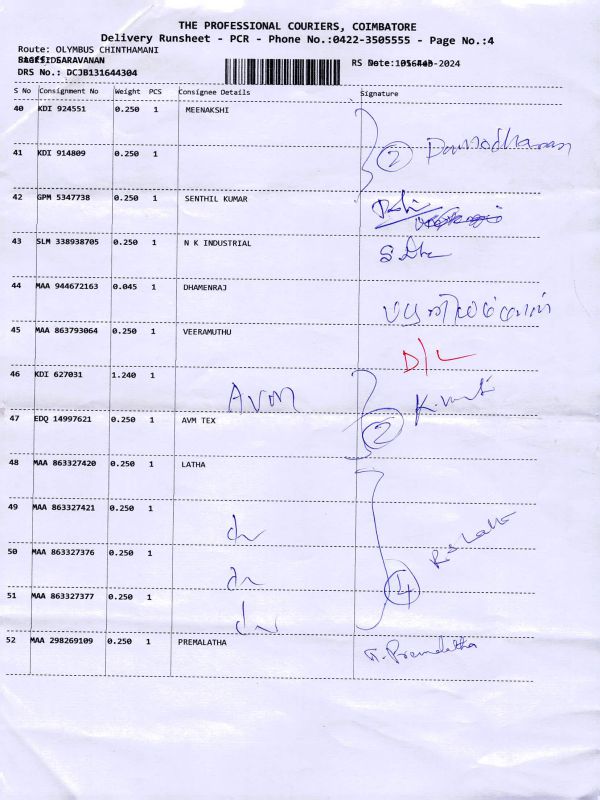 THE PROFESSIONAL COURIERS, COIMBATORE
Delivery Runsheet - PCR - Phone No.:0422-3505555 - Page No.:4
Route: OLYMBUS CHINTHAMANI
SARAVANAN
DRS No.: DCJB131644304
S No Consignment No Weight PCS Consignee Details Signature
40 KDI 924551 0.250 1 MEENAKSHI
41 KDI 914809 0.250 1
2
42 GPM 5347738 0.250 1 SENTHIL KUMAR
43 SLM 338938705 0.250 1 N K INDUSTRIAL
44 MAA 944672163 0.045 1 DHAMENRAJ
45 MAA 863793064 0.250 1 VEERAMUTHU
D/L
46 KDI 627031 1.240 1
AVM
47 EDQ 14997621 0.250 1 AVM TEX
2
48 MAA 863327420 0.250 1 LATHA
49 MAA 863327421 0.250 1
50 MAA 863327376 0.250 1
R.S Latha
51 MAA 863327377 0.250 1
4
52 MAA 298269109 0.250 1 PREMALATHA
T. Premalatha